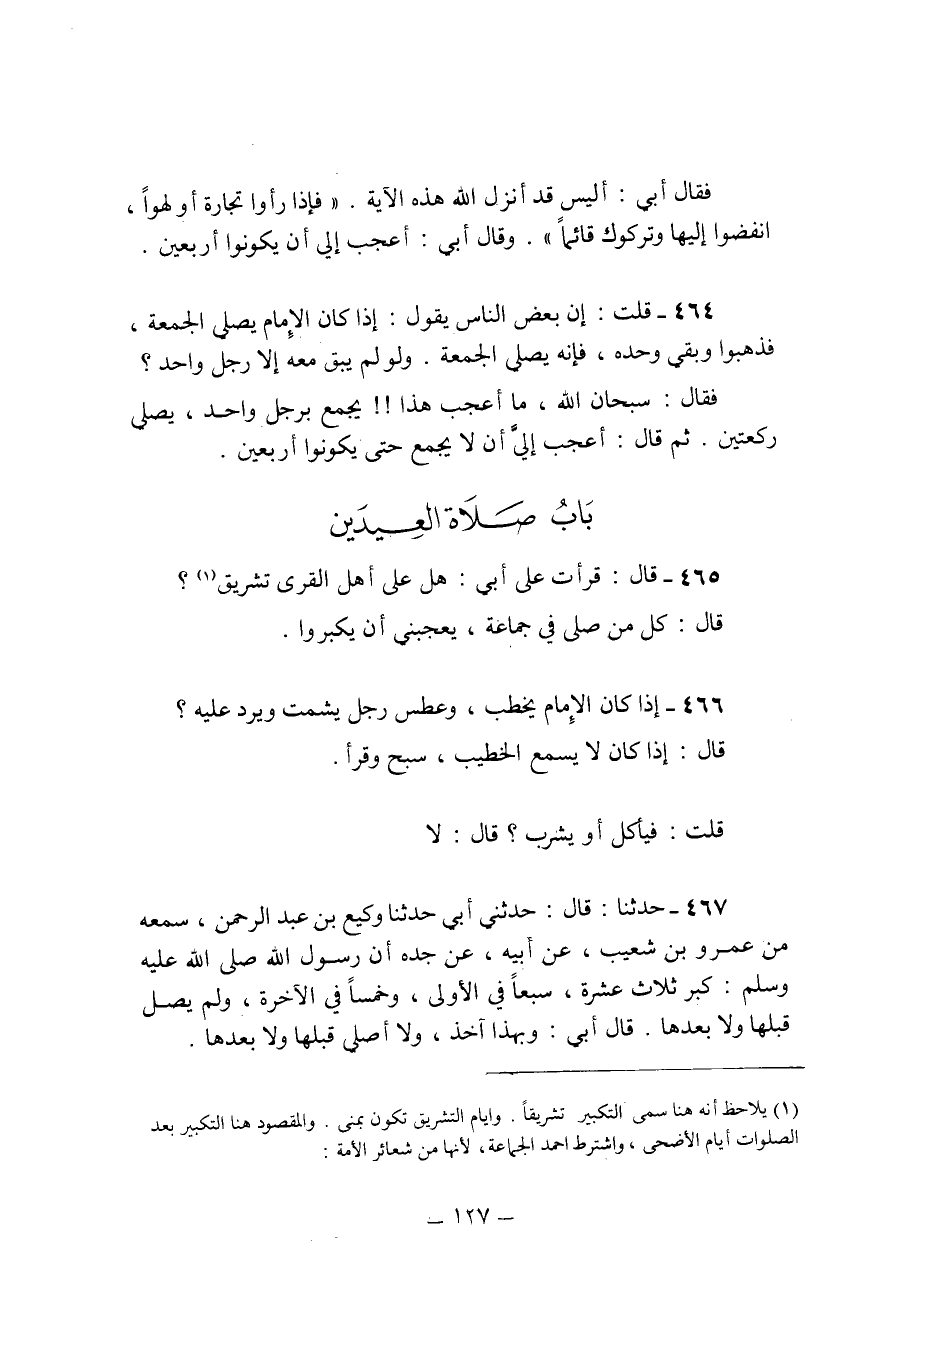 فقال أبي : أليس قد أنزل الله هذه الآية . « فإذا رأوا تجارة أو لهواً ،
انفضوا إليها وتركوك قائماً » . وقال أبي : أعجب إلي أن يكونوا أربعين .
٤٦٤ ـ قلت : إن بعض الناس يقول : إذا كان الإمام يصلي الجمعة ،
فذهبوا وبقي وحده ، فإنه يصلي الجمعة . ولو لم يبق معه إلا رجل واحد ؟
فقال : سبحان الله ، ما أعجب هذا !! يجمع برجل واحد ، يصلي
ركعتين . ثم قال : أعجب إليَّ أن لا يجمع حتى يكونوا أربعين .
بَابُ صَلَاة العِيدَين
٤٦٥ ـ قال : قرأت على أبي : هل على أهل القرى تشريق(١) ؟
قال : كل من صلى في جماعة ، يعجبني أن يكبروا .
٤٦٦ ـ إذا كان الإمام يخطب ، وعطس رجل يشمت ويرد عليه ؟
قال : إذا كان لا يسمع الخطيب ، سبح وقرأ .
قلت : فيأكل أو يشرب ؟ قال : لا
٤٦٧ ـ حدثنا : قال : حدثني أبي حدثنا وكيع بن عبد الرحمن ، سمعه
من عمرو بن شعيب ، عن أبيه ، عن جده أن رسول الله صلى الله عليه
وسلم : كبر ثلاث عشرة ، سبعاً في الأولى ، وخمساً في الآخرة ، ولم يصل
قبلها ولا بعدها . قال أبي : وبهذا آخذ ، ولا أصلي قبلها ولا بعدها .
(١) يلاحظ أنه هنا سمى التكبير تشريقاً . وايام التشريق تكون بمنى . والمقصود هنا التكبير بعد
الصلوات أيام الأضحى ، واشترط احمد الجماعة ، لأنها من شعائر الأمة :
ـ ١٢٧ ـ